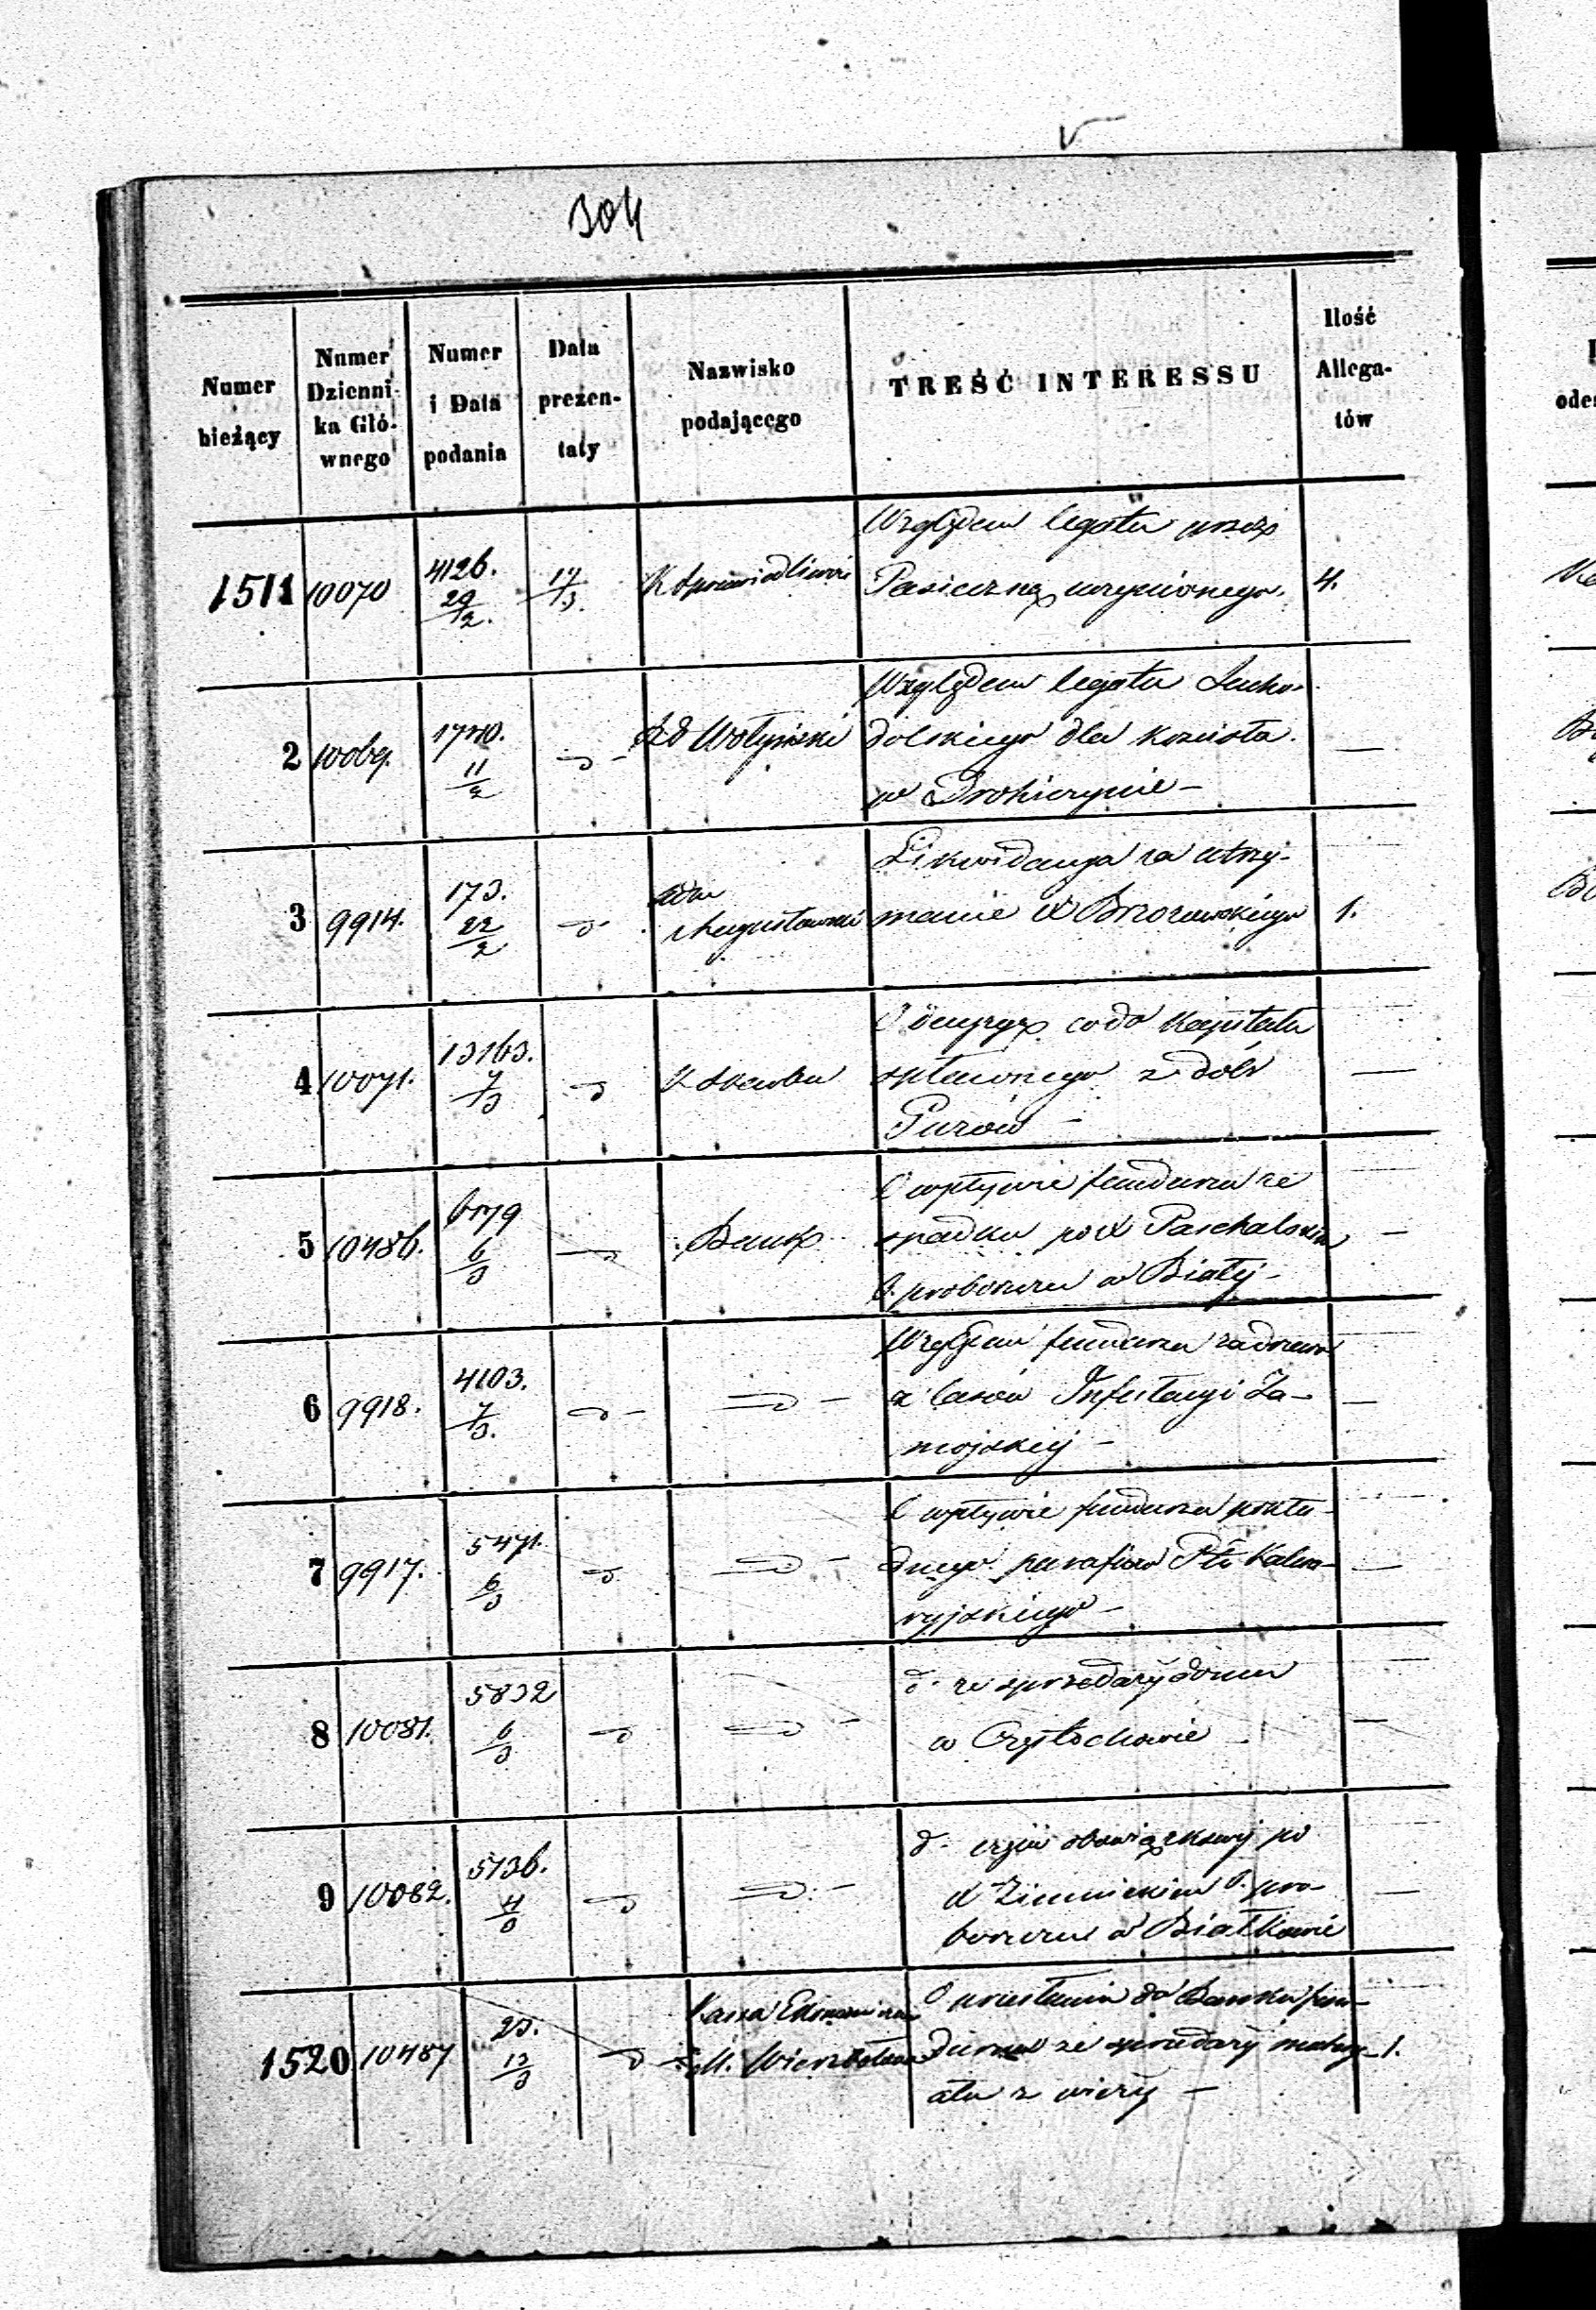 304
Numer bieżący
Numer Dzienni- ka Głó- wnego
Numer i Data podania
Data prezen- taty
Nazwisko podającego
TREŚĆ INTERESSU
Ilość Allega- tów
1511 10070 4126. 29/2. 17/3. K Sprawiedliwości Względem legatu przez
Pasieczną uczynionego. 4.
2 10069. 1740. 11/2 d- Rd Wołyński Względem legatu Sucho-
dolskiego dla kościoła
w Drohiczynie - —
3 9914. 173. 22/2 d- Augustowski Likwidacya za utrzy-
manie X Brzozowskiego 1.
4 10071. 13163. 7/3 d K Skarbu O decyzyę co do Kapitału
spławnego z dóbr
Purów - —
5 10486. 6179 6/3 d Bank O wpływie funduszu ze
spadku po X Paschalskim
b. proboszczu w Biały - —
6 9918. 4103. 7/3. d- d- Względem funduszu za drzewo
z lasów Infułacyi Za-
mojskiej - —
7 9917. 5471. 6/3 d d- O wpływie funduszu pokła-
dnego parafiów Ptu Kalwa-
ryjskiego - —
8 10081. 5832 6/3 d d- d. ze sprzedaży domu
w Częstochowie —
9 10082. 5136. 4/3 d d- d. części obowiązkowej po
X Zimnickim b. pro-
boszczu w Białkowie —
1520 10487 23. 13/3 d Kassa Ekonomiczna
M. Wierzbołowa O przesłaniu do Banku fun-
duszu ze sprzedaży matery-
ału z wieży - 1.